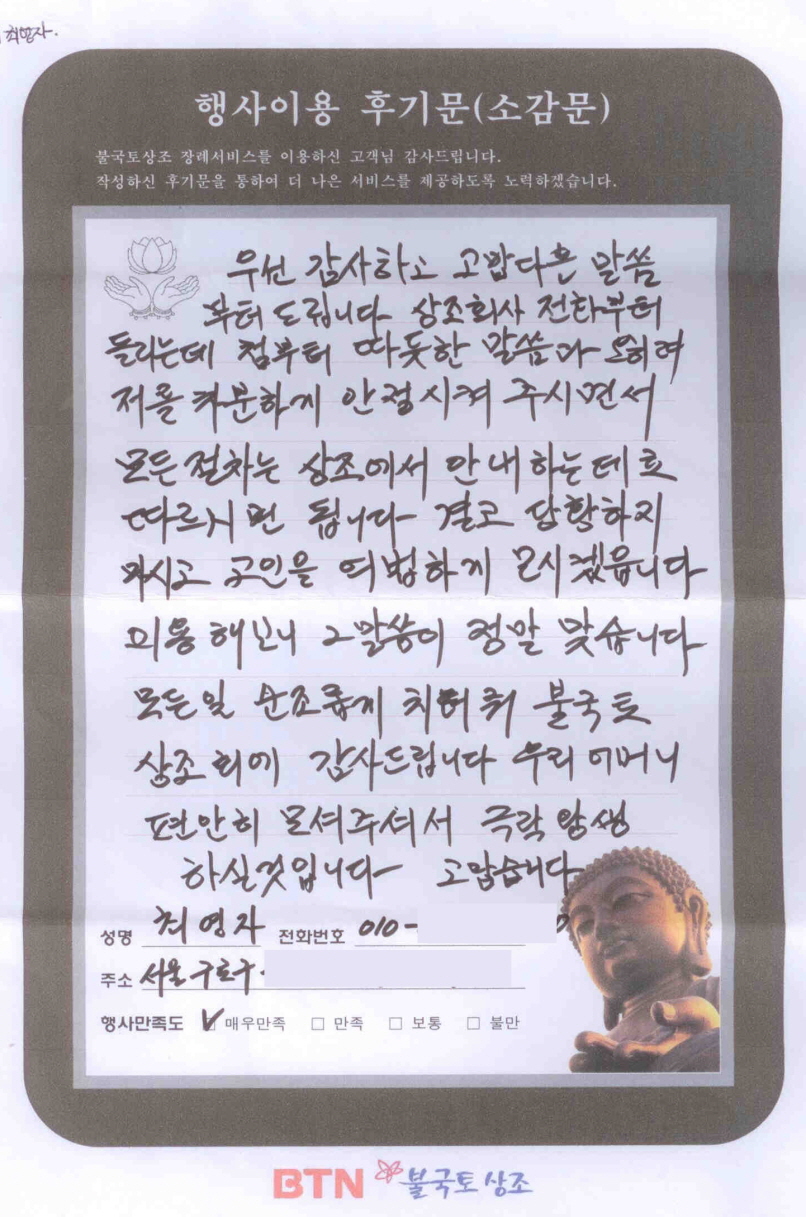 최영자.
행사이용 후기문(소감문)
불국토상조 장례서비스를 이용하신 고객님 감사드립니다.
작성하신 후기문을 통하여 더 나은 서비스를 제공하도록 노력하겠습니다.
우선 감사하고 고맙다는 말씀
부터 드립니다 상조회사 전화부터
돌리는데 첨부터 따듯한 말씀과 오히려
저를 차분하게 안정시켜 주시면서
모든 절차는 상조에서 안내하는데로
따르시면 됩니다 결코 당황하지
마시고 고인을 여법하게 모시켔읍니다
이용해보니 그말씀이 정말 맞습니다
모든일 순조롭게 치러줘 불국토
상조회에 감사드립니다 우리 어머니
편안히 모셔주셔서 극락왕생
하실것입니다 고맙습니다
성명 최영자 전화번호 010-
주소 서울 구로구.
행사만족도 ☑ 매우만족 □ 만족 □ 보통 □ 불만
BTN 불국토상조